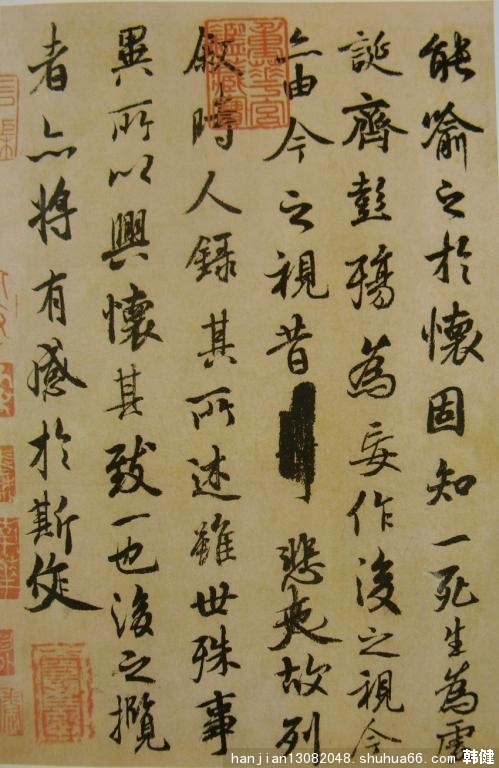 能喻之於懷固知一死生為虛
誕齊彭殤為妄作後之視今
亦由今之視昔悲夫故列
敘時人錄其所述雖世殊事
異所以興懷其致一也後之攬
者亦將有感於斯文
重華宮
鑑藏寶
hanjian13082048.shuhua66.com 韩健